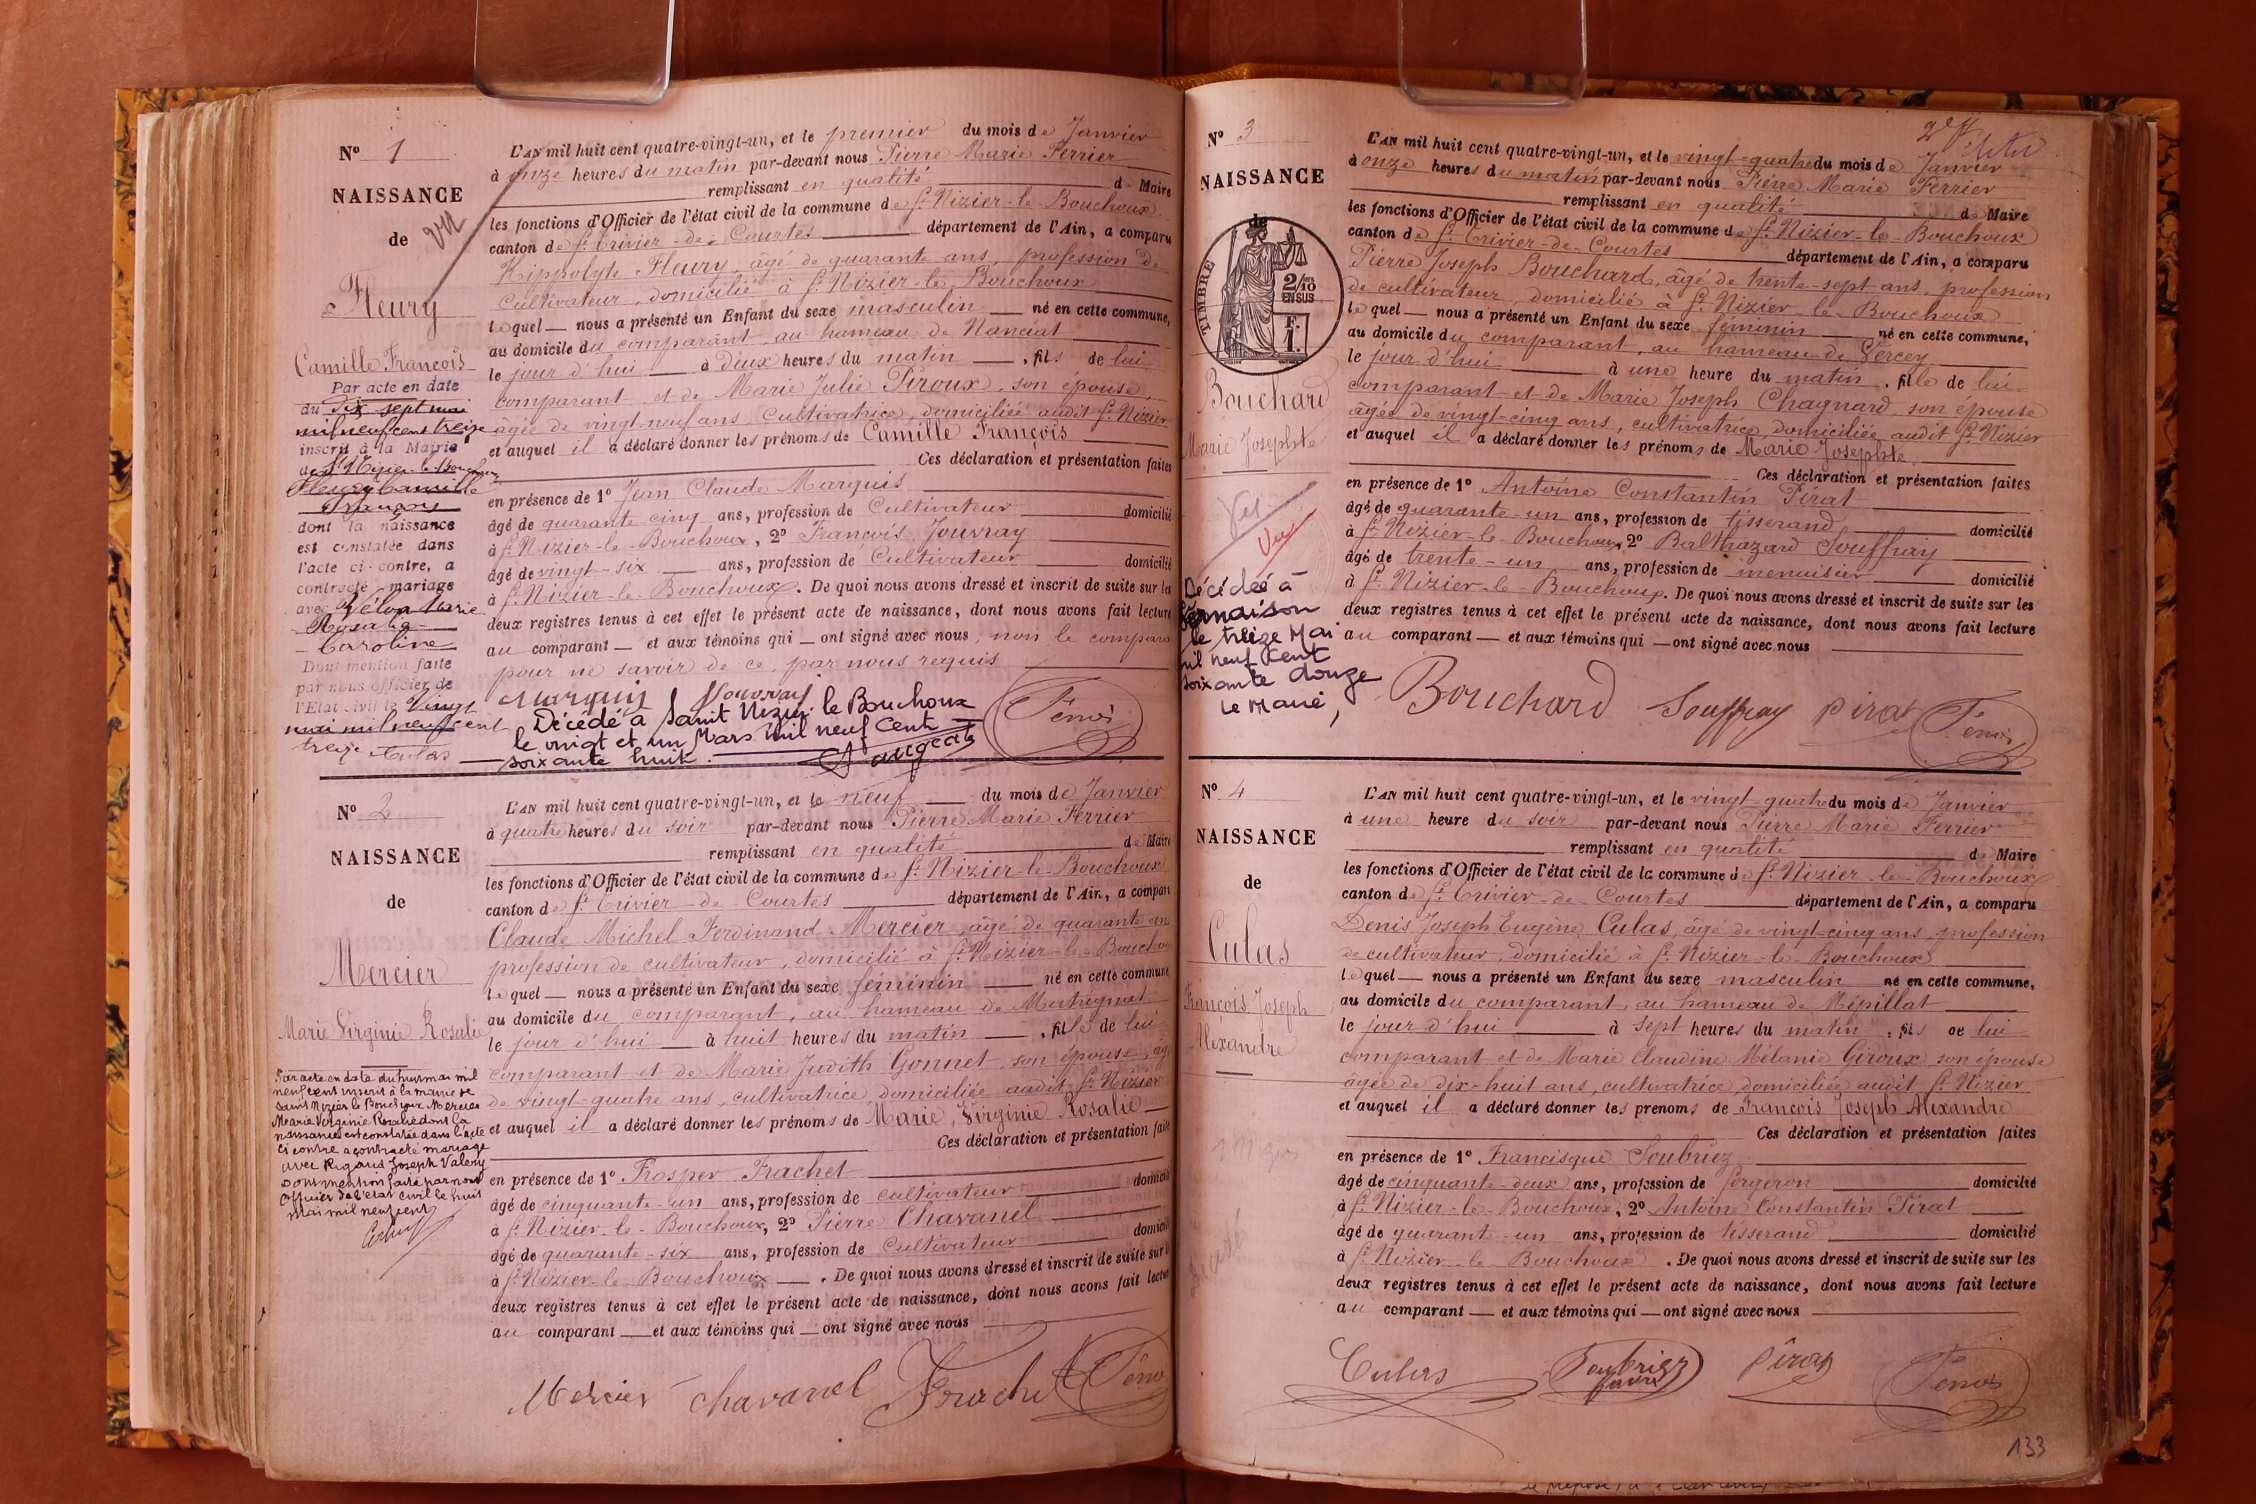 Nº 1
NAISSANCE
de
Fleury
Camille François
Par acte en date
du dix sept mai
mil neuf cent treize
inscrit à la Mairie
de St Nizier-le-Bouchoux
Fleury Camille
François
dont la naissance
est constatée dans
l'acte ci-contre, a
contracté mariage
avec Vélon Marie
Rosalie
Caroline
Dont mention faite
par nous officier de
l'Etat civil le vingt
mai mil neuf cent
treize Culas
L'AN mil huit cent quatre-vingt-un, et le premier du mois de Janvier
à onze heures du matin par-devant nous Pierre Marie Ferrier
remplissant en qualité de Maire
les fonctions d'Officier de l'état civil de la commune de St Nizier-le-Bouchoux
canton de St Trivier-de-Courtes département de l'Ain, a comparu
Hippolyte Fleury, âgé de quarante ans, profession de
Cultivateur, domicilié à St Nizier-le-Bouchoux
lequel nous a présenté un Enfant du sexe masculin né en cette commune,
au domicile du comparant, au hameau de Nanciat
le jour d'hui à deux heures du matin, fils de lui
comparant et de Marie Julie Piroux, son épouse,
âgée de vingt-neuf ans, Cultivatrice, domiciliée audit St Nizier
et auquel il a déclaré donner les prénoms de Camille François
Ces déclaration et présentation faites
en présence de 1º Jean Claude Marquis
âgé de quarante-cinq ans, profession de Cultivateur domicilié
à St Nizier-le-Bouchoux, 2º François Jouvray
âgé de vingt-six ans, profession de Cultivateur domicilié
à St Nizier-le-Bouchoux. De quoi nous avons dressé et inscrit de suite sur les
deux registres tenus à cet effet le présent acte de naissance, dont nous avons fait lecture
au comparant et aux témoins qui ont signé avec nous, non le compara
pour ne savoir de ce par nous requis
Marquis Jouvray
Décédé à Saint Nizier le Bouchoux
le vingt et un Mars mil neuf Cent
soixante huit.
Nº 2
NAISSANCE
de
Mercier
Marie Virginie Rosalie
Par acte en date du huit mai mil
neuf cent inscrit à la mairie de
Saint Nizier le Bouchoux Mercier
Marie Virginie Rosalie dont la
naissance est constatée dans l'acte
ci contre a contracté mariage
avec Rigaud Joseph Valery
Dont mention faite par nous
officier de l'état civil le huit
mai mil neuf cent
L'AN mil huit cent quatre-vingt-un, et le neuf du mois de Janvier
à quatre heures du soir par-devant nous Pierre Marie Ferrier
remplissant en qualité de Maire
les fonctions d'Officier de l'état civil de la commune de St Nizier-le-Bouchoux
canton de St Trivier-de-Courtes département de l'Ain, a comparu
Claude Michel Ferdinand Mercier, âgé de quarante an
profession de cultivateur, domicilié à St Nizier-le-Bouchou
lequel nous a présenté un Enfant du sexe féminin né en cette commune
au domicile du comparant, au hameau de Montrignat
le jour d'hui à huit heures du matin, fille de lui
comparant et de Marie Judith Gonnet, son épouse, âgé
de vingt-quatre ans, cultivatrice, domiciliée audit St Nizier
et auquel il a déclaré donner les prénoms de Marie Virginie Rosalie
Ces déclaration et présentation faite
en présence de 1º Prosper Frachet
âgé de cinquante-un ans, profession de cultivateur domicilié
à St Nizier-le-Bouchoux, 2º Pierre Chavanel
âgé de quarante-six ans, profession de Cultivateur domicilié
à St Nizier-le-Bouchoux. De quoi nous avons dressé et inscrit de suite sur l
deux registres tenus à cet effet le présent acte de naissance, dont nous avons fait lectur
au comparant et aux témoins qui ont signé avec nous
Mercier Chavanel Frachet
Nº 3
NAISSANCE
de
TIMBRE
2/10
EN SUS
Bouchard
Marie Josephte
Vu
Décédée à
Vernaison
le treize Mai
mil neuf cent
soixante douze
Le Maire,
L'AN mil huit cent quatre-vingt-un, et le vingt-quatre du mois de Janvier
à onze heures du matin par-devant nous Pierre Marie Ferrier
remplissant en qualité de Maire
les fonctions d'Officier de l'état civil de la commune de St Nizier-le-Bouchoux
canton de St Trivier-de-Courtes département de l'Ain, a comparu
Pierre Joseph Bouchard, âgé de trente-sept ans, profession
de cultivateur, domicilié à St Nizier-le-Bouchoux
lequel nous a présenté un Enfant du sexe féminin né en cette commune,
au domicile du comparant, au hameau de Vercey
le jour d'hui à une heure du matin, fille de lui
comparant et de Marie Joseph Chagnard, son épouse
âgée de vingt-cinq ans, cultivatrice, domiciliée audit St Nizier
et auquel il a déclaré donner les prénoms de Marie Josephte
Ces déclaration et présentation faites
en présence de 1º Antoine Constantin Pirat
âgé de quarante-un ans, profession de tisserand domicilié
à St Nizier-le-Bouchoux, 2º Balthazard Souffray
âgé de trente-un ans, profession de menuisier domicilié
à St Nizier-le-Bouchoux. De quoi nous avons dressé et inscrit de suite sur les
deux registres tenus à cet effet le présent acte de naissance, dont nous avons fait lecture
au comparant et aux témoins qui ont signé avec nous
Bouchard Souffray Pirat
Nº 4
NAISSANCE
de
Culas
François Joseph
Alexandre
L'AN mil huit cent quatre-vingt-un, et le vingt-quatre du mois de Janvier
à une heure du soir par-devant nous Pierre Marie Ferrier
remplissant en qualité de Maire
les fonctions d'Officier de l'état civil de la commune de St Nizier-le-Bouchoux
canton de St Trivier-de-Courtes département de l'Ain, a comparu
Denis Joseph Eugène Culas, âgé de vingt-cinq ans, profession
de cultivateur, domicilié à St Nizier-le-Bouchoux
lequel nous a présenté un Enfant du sexe masculin né en cette commune,
au domicile du comparant, au hameau de Mépillat
le jour d'hui à sept heures du matin, fils de lui
comparant et de Marie Claudine Mélanie Giroux, son épouse
âgée de dix-huit ans, cultivatrice, domiciliée audit St Nizier
et auquel il a déclaré donner les prénoms de François Joseph Alexandre
Ces déclaration et présentation faites
en présence de 1º Francisque Soubriez
âgé de cinquante-deux ans, profession de forgeron domicilié
à St Nizier-le-Bouchoux, 2º Antoine Constantin Pirat
âgé de quarante-un ans, profession de tisserand domicilié
à St Nizier-le-Bouchoux. De quoi nous avons dressé et inscrit de suite sur les
deux registres tenus à cet effet le présent acte de naissance, dont nous avons fait lecture
au comparant et aux témoins qui ont signé avec nous
Culas Soubriez Pirat
133